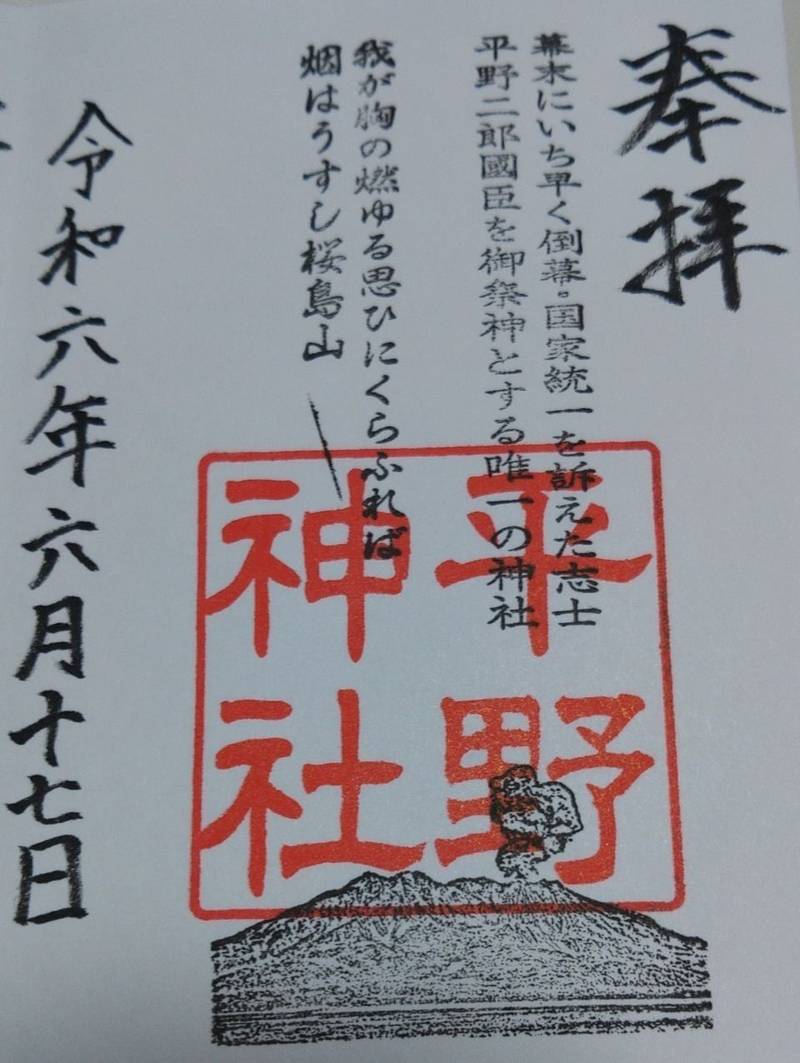 奉拝
幕末にいち早く倒幕。国家統一を訴えた志士
平野二郎國臣を御祭神とする唯一の神社
我が胸の燃ゆる思ひにくらふれば
烟はうすし桜島山
平野
神社
令和六年六月十七日